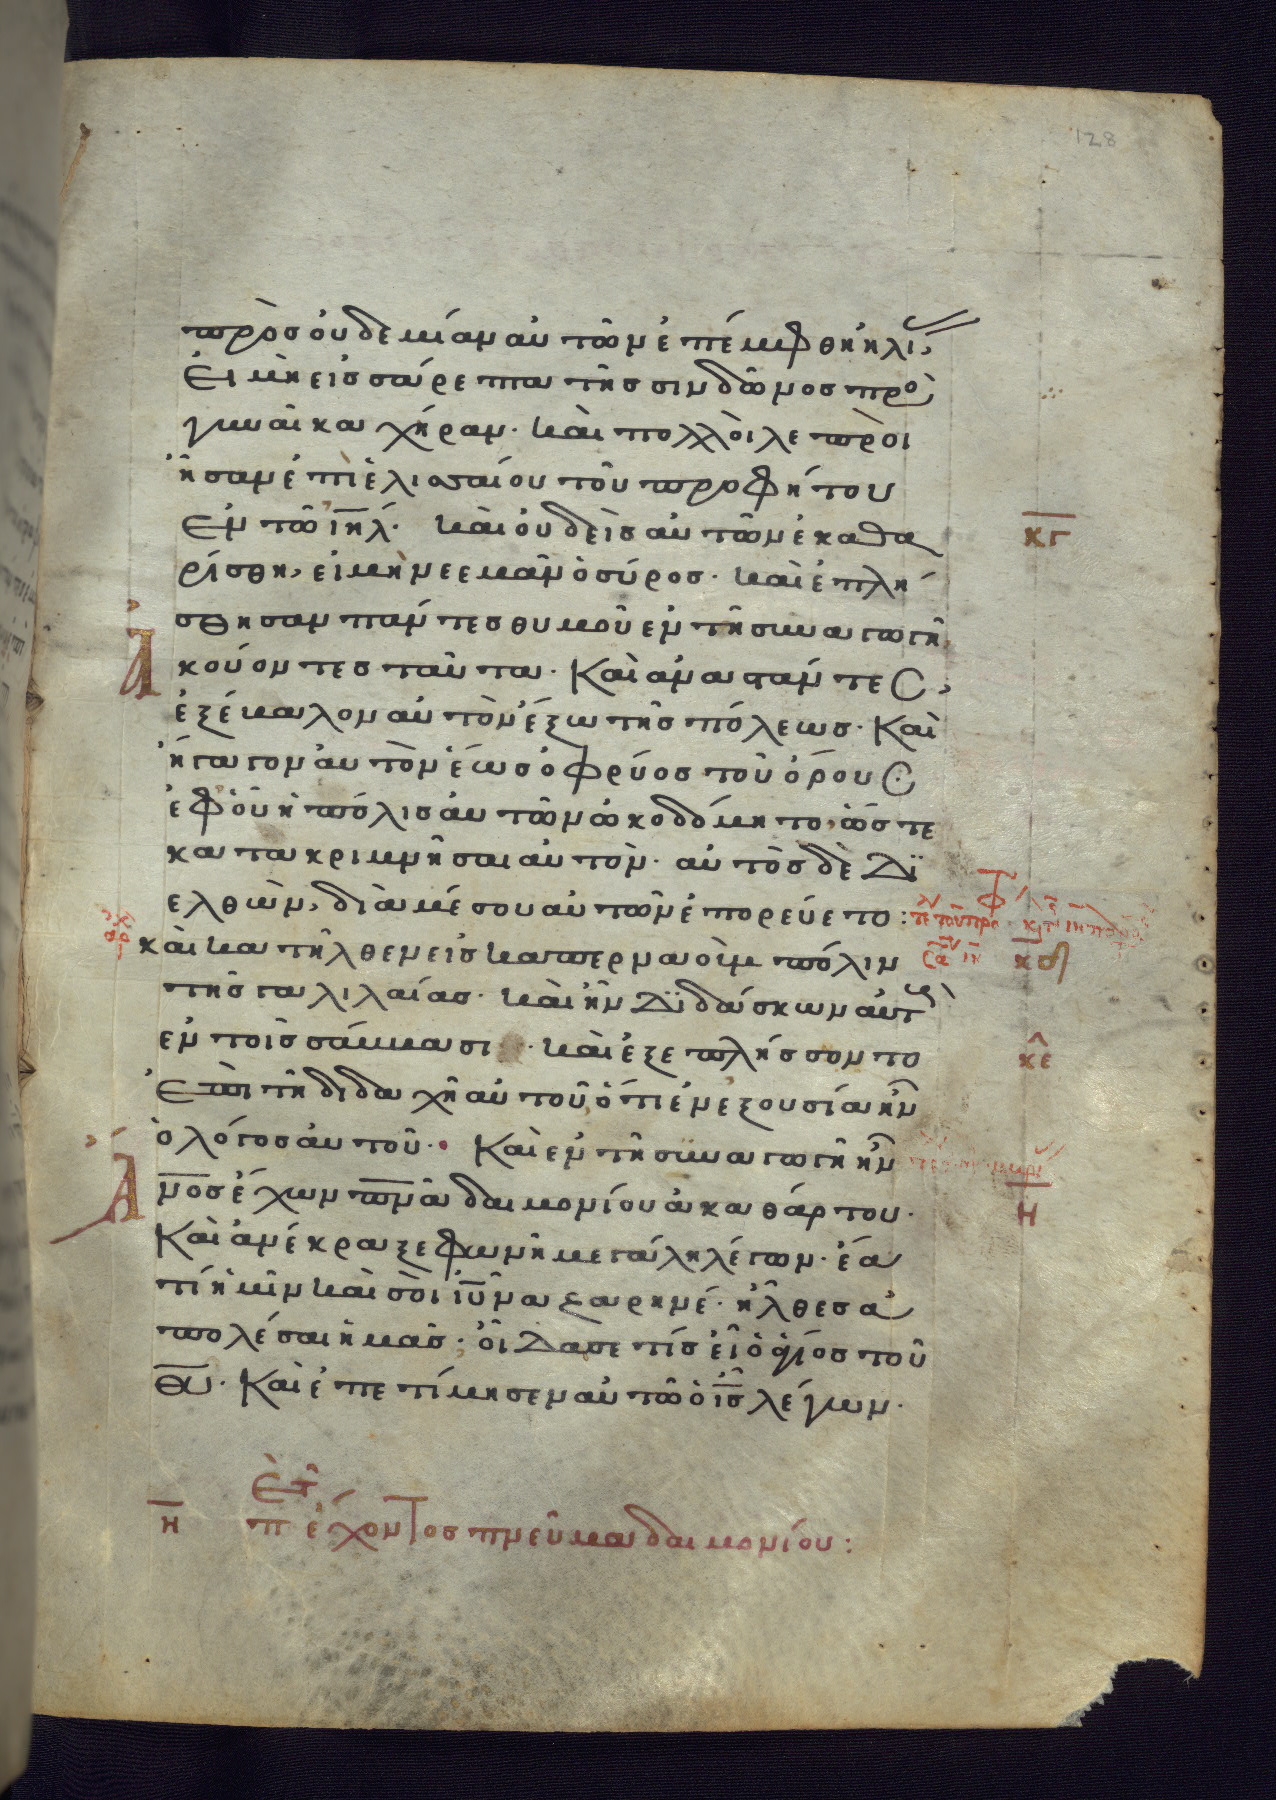 128
πρὸσ οὐδεμίαν αὐτῶν ἐπέμφθη ἠλί,
Εἰ μὴ εἰσ σάρεπτα τῆσ σινδῶνοσ πρὸ
γυναῖκα χήραν. καὶ πολλοὶ λεπροὶ
ἦσαν ἐπὶ ἐλισσαίου τοῦ προφήτου
Ἐν τῶ ιηλ. καὶ οὐδεὶσ αὐτῶν ἐκαθα
ρίσθη, εἰ μὴ νεεμὰν ὁ σύροσ. καὶ ἐπλή
σθησαν πάντεσ θυμοῦ ἐν τῆ συναγωγῆ
Ἀκούοντεσ ταῦτα. Καὶ ἀναστάντεσ,
ἐξέβαλον αὐτὸν ἔξω τῆσ πόλεωσ. Καὶ
ἤγαγον αὐτὸν ἕωσ ὀφρύοσ τοῦ ὄρουσ
ἐφ οὗ ἡ πόλισ αὐτῶν ὠκοδόμητο, ὥστε
κατακρημνῆσαι αὐτόν. αὐτὸσ δὲ δϊ
ελθὼν, διὰ μέσου αὐτῶν ἐπορεύετο:
καὶ κατῆλθεν εἰσ καπερναοὺμ πόλιν
τῆσ γαλιλαίασ. καὶ ἦν δϊδάσκων αὐτ
ἐν τοῖσ σάββασι. καὶ ἐξεπλήσσοντο
Ἐπὶ τῆ διδαχῆ αὐτοῦ, ὅτι ἐν ἐξουσία ἦν
ὁ λόγοσ αὐτοῦ. Καὶ ἐν τῆ συναγωγῆ ἦν
Ἄνοσ ἔχων πνα δαιμονίου ἀκαθάρτου.
Καὶ ἀνέκραξε φωνῆ μεγάλη λέγων. ἔα
τί ἡμῖν καὶ σοὶ ιυ ναζαρηνέ. ἦλθεσ ἀ
πολέσαι ἡμᾶσ. οἶδά σε τίσ εἶ ὁ ἅγιοσ τοῦ
θυ. Καὶ ἐπετίμησεν αὐτῶ ὁ ισ λέγων.
κγ
κδ
κε
η
η π ἔχοντοσ πνεῦμα δαιμονίου: